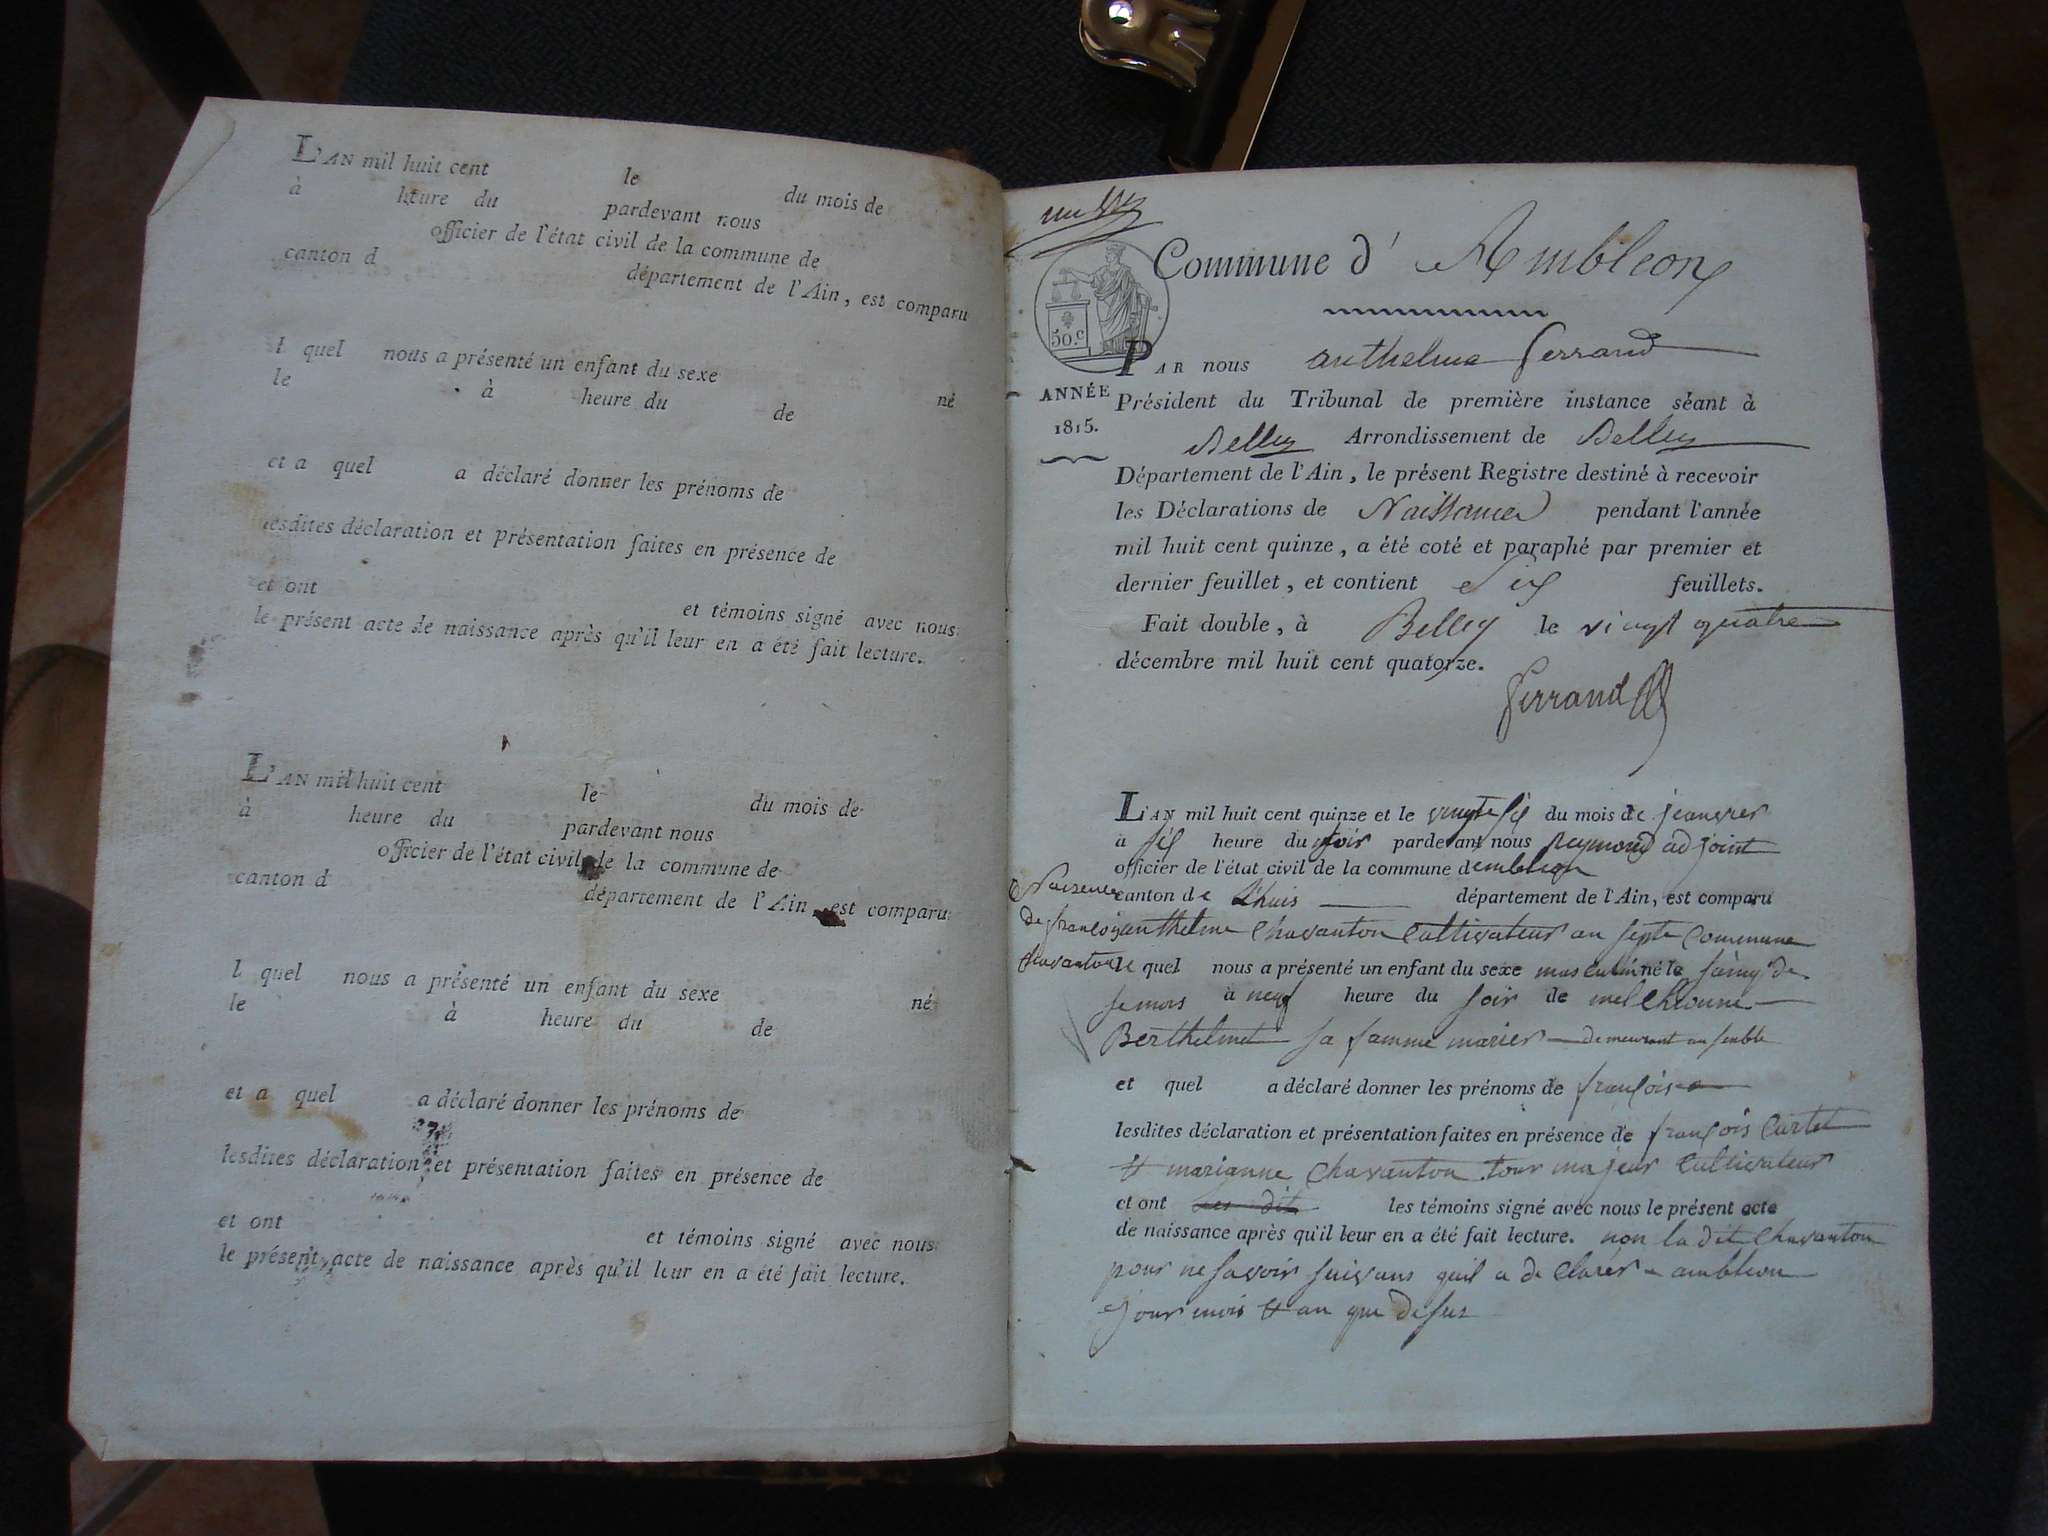 L'AN mil huit cent le du mois de
à heure du pardevant nous
officier de l'état civil de la commune de
canton d département de l'Ain, est comparu
l quel nous a présenté un enfant du sexe né
le à heure du de
et a quel a déclaré donner les prénoms de
lesdites déclaration et présentation faites en présence de
et ont et témoins signé avec nous
le présent acte de naissance après qu'il leur en a été fait lecture.
L'AN mil huit cent le du mois de
à heure du pardevant nous
officier de l'état civil de la commune de
canton d département de l'Ain, est comparu
l quel nous a présenté un enfant du sexe né
le à heure du de
et a quel a déclaré donner les prénoms de
lesdites déclaration et présentation faites en présence de
et ont et témoins signé avec nous
le présent acte de naissance après qu'il leur en a été fait lecture.
Commune d' Ambleon
50.c
PAR nous anthelme ferrand
ANNÉE
1815.
Président du Tribunal de première instance séant à
Belley Arrondissement de Belley
Département de l'Ain, le présent Registre destiné à recevoir
les Déclarations de Naissance pendant l'année
mil huit cent quinze, a été coté et paraphé par premier et
dernier feuillet, et contient Six feuillets.
Fait double, à Belley le vingt quatre
décembre mil huit cent quatorze.
ferrand
L'AN mil huit cent quinze et le du mois de
à heure du soir pardevant nous reymond adjoint
officier de l'état civil de la commune dembleon
canton de Lhuis département de l'Ain, est comparu
de françois
chavanton
anthelme chavanton cultivateur au commune
le quel nous a présenté un enfant du sexe masculin né le de
à neuf heure du soir de
Berthelmet sa famme marier demeurant
et quel a déclaré donner les prénoms de françois
lesdites déclaration et présentation faites en présence de françois Curtet
et marianne chavanton tour majeur cultivateur
et ont les témoins signé avec nous le présent acte
de naissance après qu'il leur en a été fait lecture. non la dit chavanton
pour ne savoir suivans quil a de clarer a ambleon
jour mois et an que desus